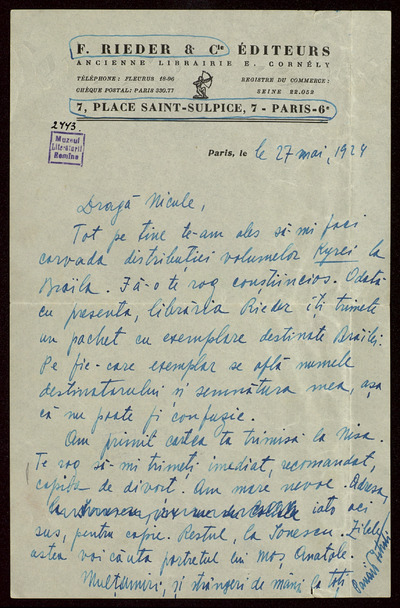 F. RIEDER & Cie ÉDITEURS
ANCIENNE LIBRAIRIE E. CORNÉLY
TÉLÉPHONE : FLEURUS 18-06
REGISTRE DU COMMERCE :
CHÈQUE POSTAL: PARIS 330.77
SEINE 22.053
7, PLACE SAINT-SULPICE, 7 - PARIS-6e
2443.
Muzeul
Literaturii
Romîne
Paris, le le 27 mai, 1924
Dragă Nicule,
Tot pe tine te-am ales să-mi faci
corvada distribuției volumelor Kyrei la
Brăila. Fă-o te rog conștiincios. Odată
cu prezenta, librăria Rieder îți trimete
un pachet cu exemplare destinate Brăilei.
Pe fie-care exemplar se află numele
destinatarului și semnătura mea, așa
că nu poate fi confuzie.
Am primit cartea ta trimisă la Nisa.
Te rog să-mi trimeți imediat, recomandat,
copia de divorț. Am mare nevoe. Adresa,
iată aci
sus, pentru copie. Restul, la Ionescu. Zilele
astea voi căuta portretul lui Moș Anatole.
Mulțumiri, și strângeri de mâni la toți,
Panait Istrati